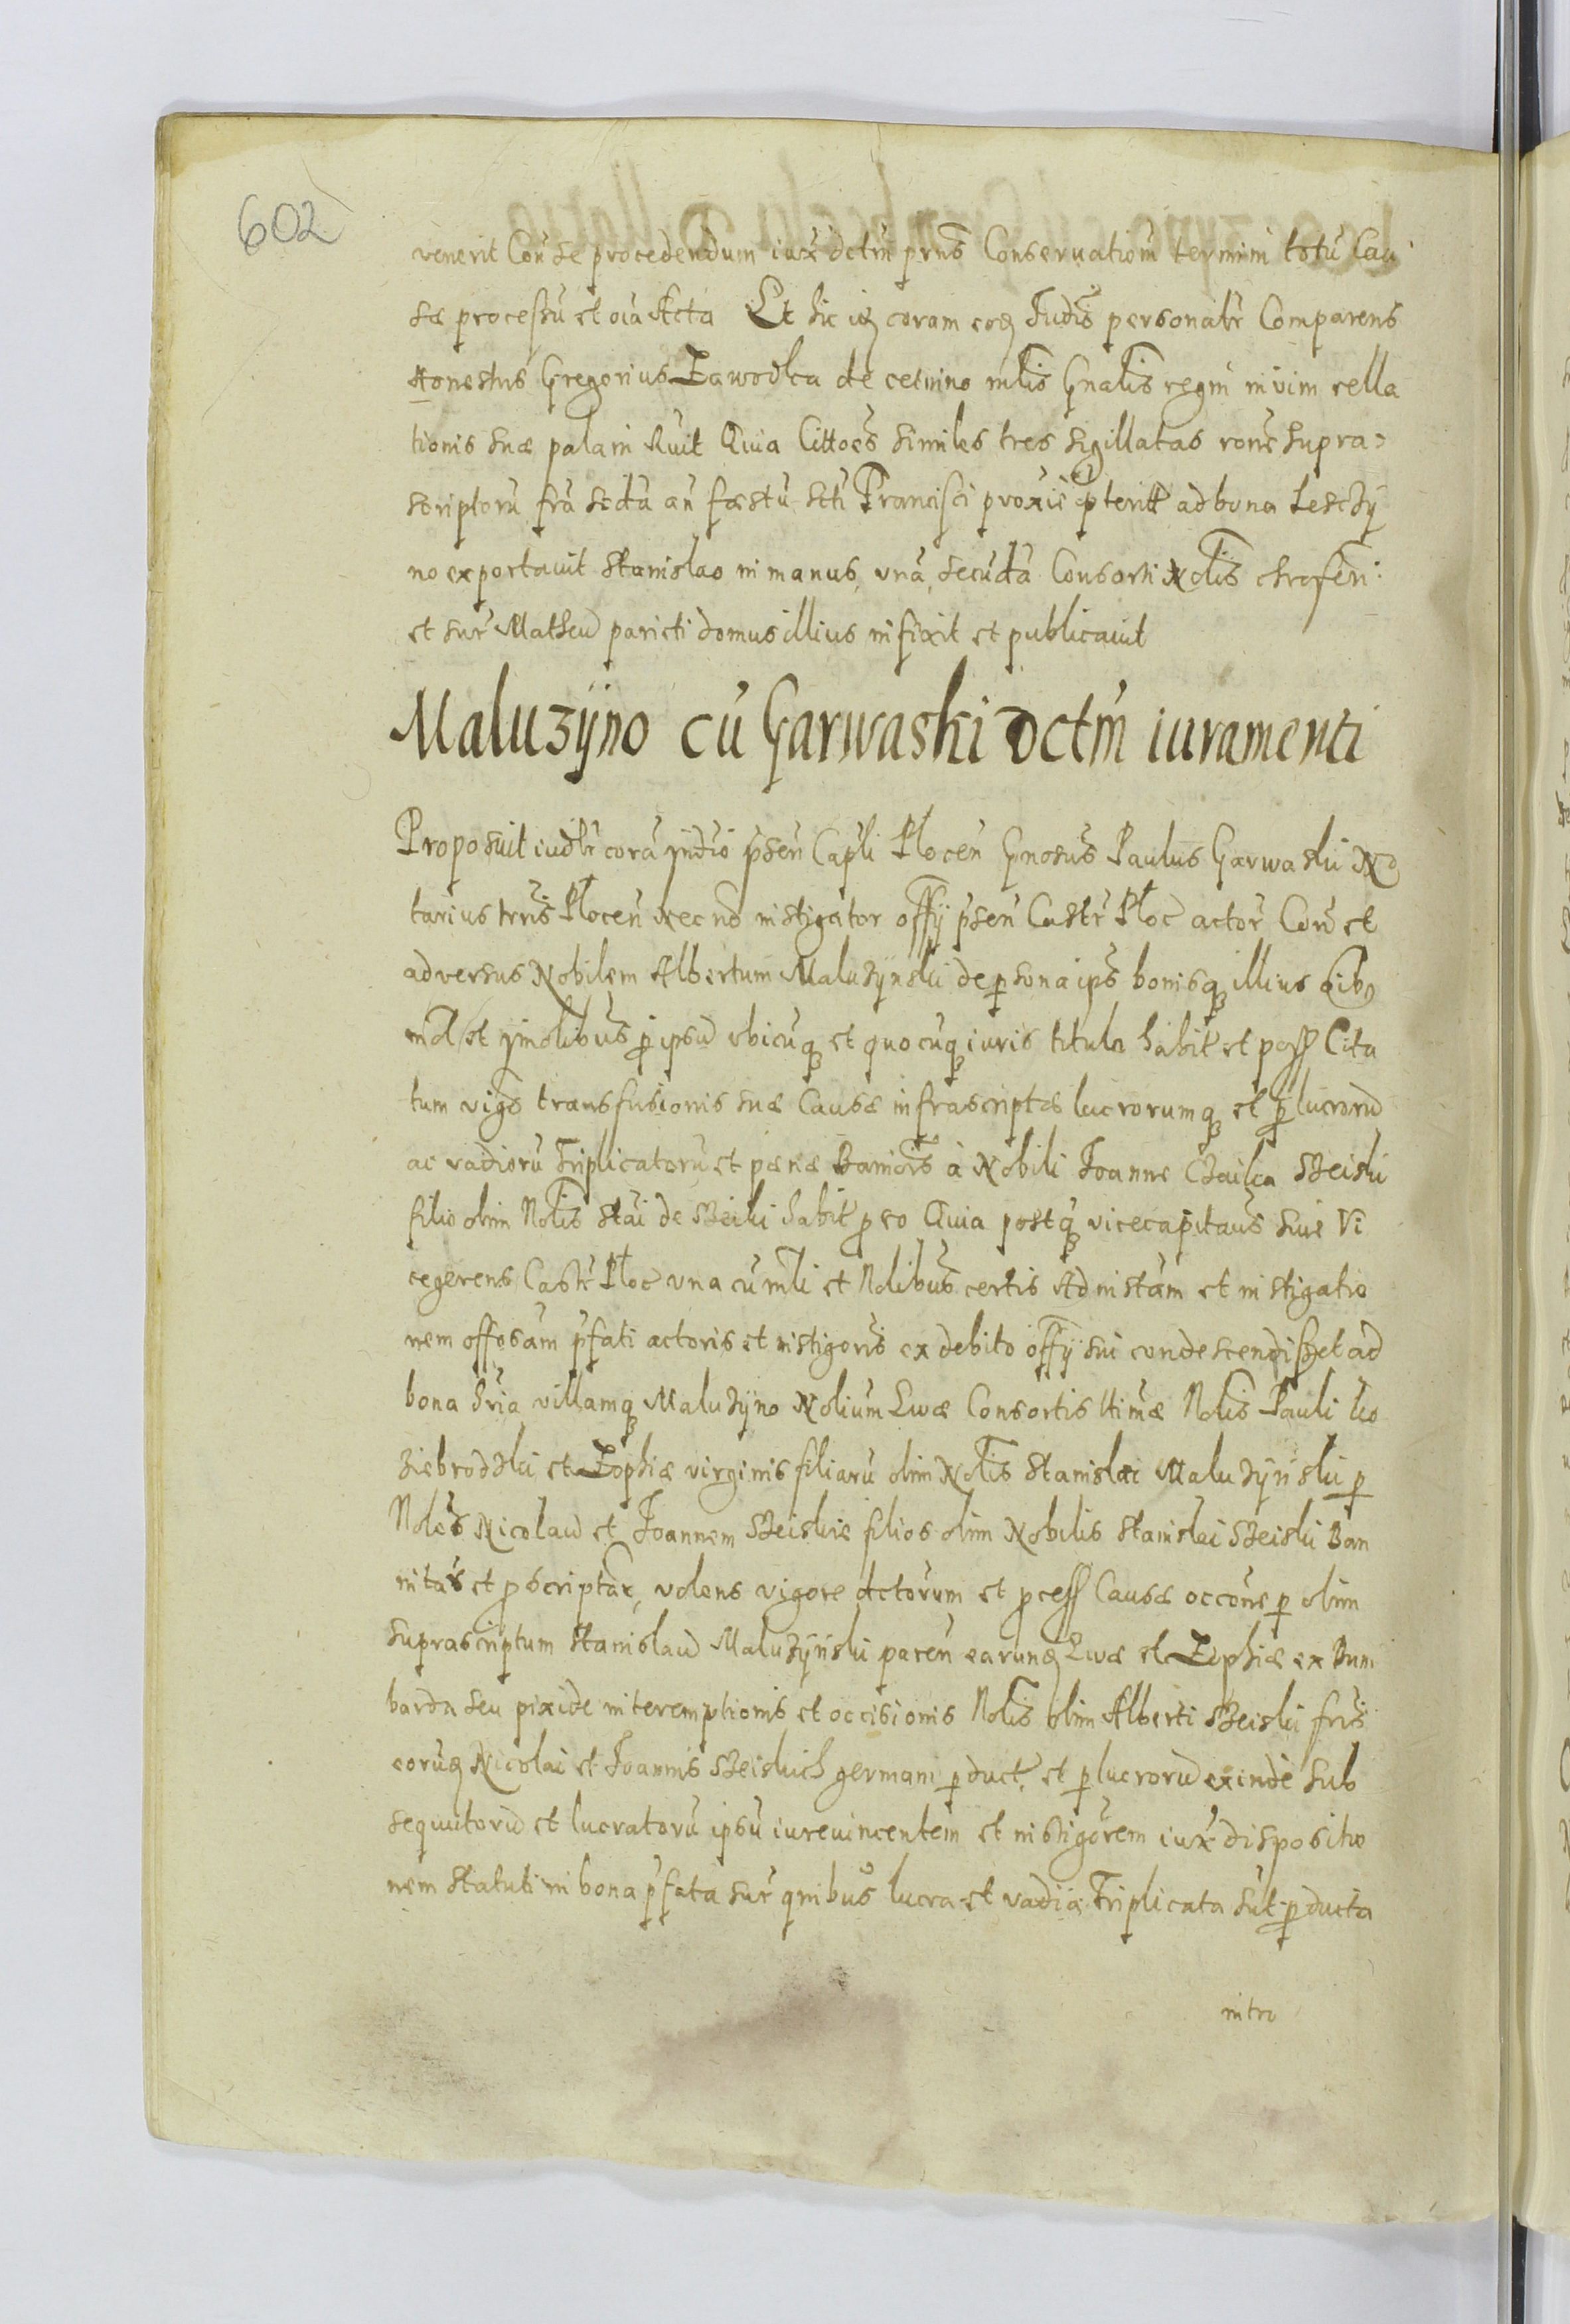 602
venerit Coũ se procedendum iux̃ dctm̃ prns̃ Conseruationũ terminĩ totũ Cau
sæ processũ et oĩa Acta Et hic iꝫ coram eoꝫ Iudĩs personalr̃ Comparens
Honestus Gregorius Zawodka de cetnino mlĩs Gnalĩs regni in vim rella
tionis suæ palam Quia Cittoẽs similes tres sigillatas ronẽ supra
scriptorũ frã secdã an̄ fæstũ scti Francisci proxiẽ pteritt ad bona Leszczy
no exportavit Stanislao in manus, vnã, secũdã Consorti Nolĩs
et sur̃ Matheũ parieti domus illius infixit et publicavit
Maluzÿno cũ Garwaski dctm̃ iuramenti
Proposuit iudlr̃ corã yudiõ pseñ Capli Płoceñ Gnosus Paulus Garwaski No
tarius trris̃ Płoceñ necnõ instigator offÿ pseñ Castr̃ Płoc actor Coñ et
adversus Nobilem Albertum Maluzynski de psona ips̃ bonisqꝫ illius oĩbꝰ
mol et ymolibus p ipsũ vbicũqꝫ et quocũqꝫ iuris titulo habit̃ et poss̃ Cita
tum vigõ transfusionis suæ Causæ infrascriptæ lucrorumqꝫ et p lucrorũ
ac vadiorũ Triplicatorũ et pænæ Banionĩs à Nobili Joanne Czaika Szeiski
filio olim Nolĩs Staĩ de Szeiki habit̃ pro eo Quia postqꝫ vicecapitañs siue Vi
cegerens Castr̃ Płoc vna cũ mli et Nolibus certis Ad instãm et instigatio
nem offosãm pfati actoris et instigoris̃ ex debito offÿ sui condescendisset ad
bona hrĩa villamqꝫ Maluzyno Nolium Ewæ Consortis lttimæ Nolĩs Pauli ko
ziebrodzki et Zophiæ virginis filiarũ olim Nolĩs Stanislai Maluzyński p
Nolẽs Nicolaũ et Joannem Szeiskie filios olim Nobilis Stanislai Szeiski Ban
nitas et pscriptãs, volens vigore dctorum et pcess Causæ occonẽ p olim
suprascriptum Stanislaũ Maluzÿński pareñ earunꝫ Ewæ et Zophiæ ex Bum
barda seu pixide interemptionis et occisionis Nolĩs olim Alberti Szeiski fris̃
eorũꝫ Nicolai et Joannis Szeiskich germani p duct̃ et p lucrorũ exindè sub
sequutorũ et lucratorũ ipsũ iurevincentem et instigorem iux̃ dispositio
nem Statuti in bona pfata sur̃ quibus lucra et vadia Triplicata sũt p ducta
intro